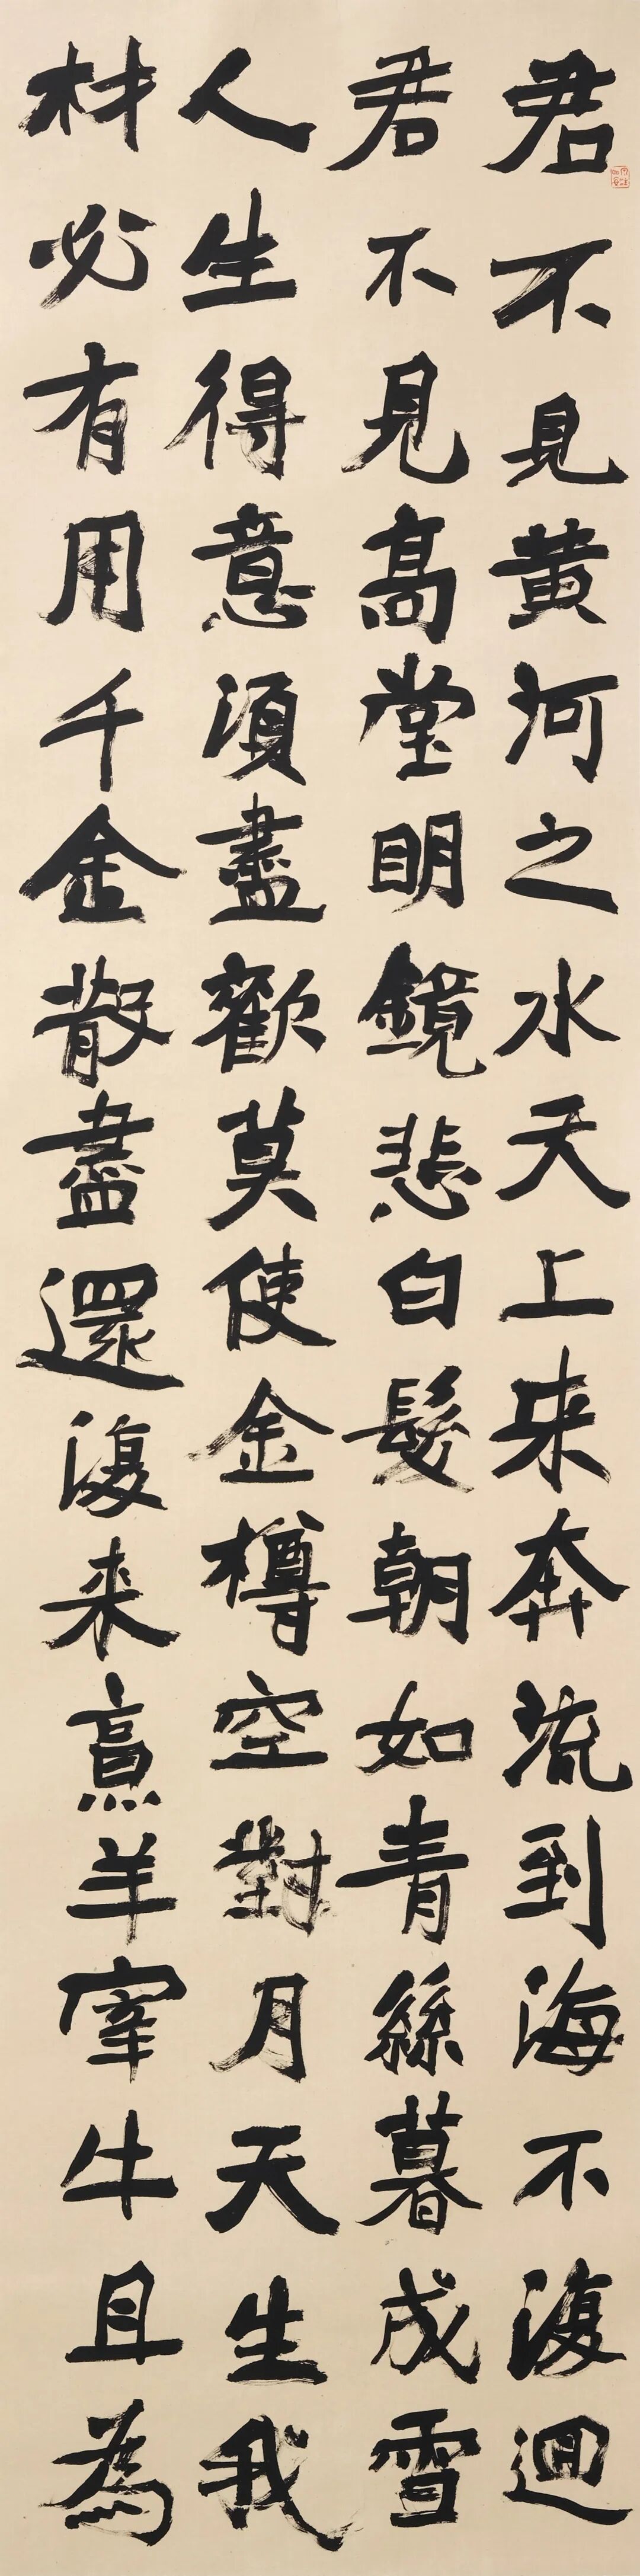 君不見黃河之水天上来奔流到海不復迴
君不見高堂明鏡悲白髮朝如青絲暮成雪
人生得意須盡歡莫使金樽空對月天生我
材必有用千金散盡還復来烹羊宰牛且為